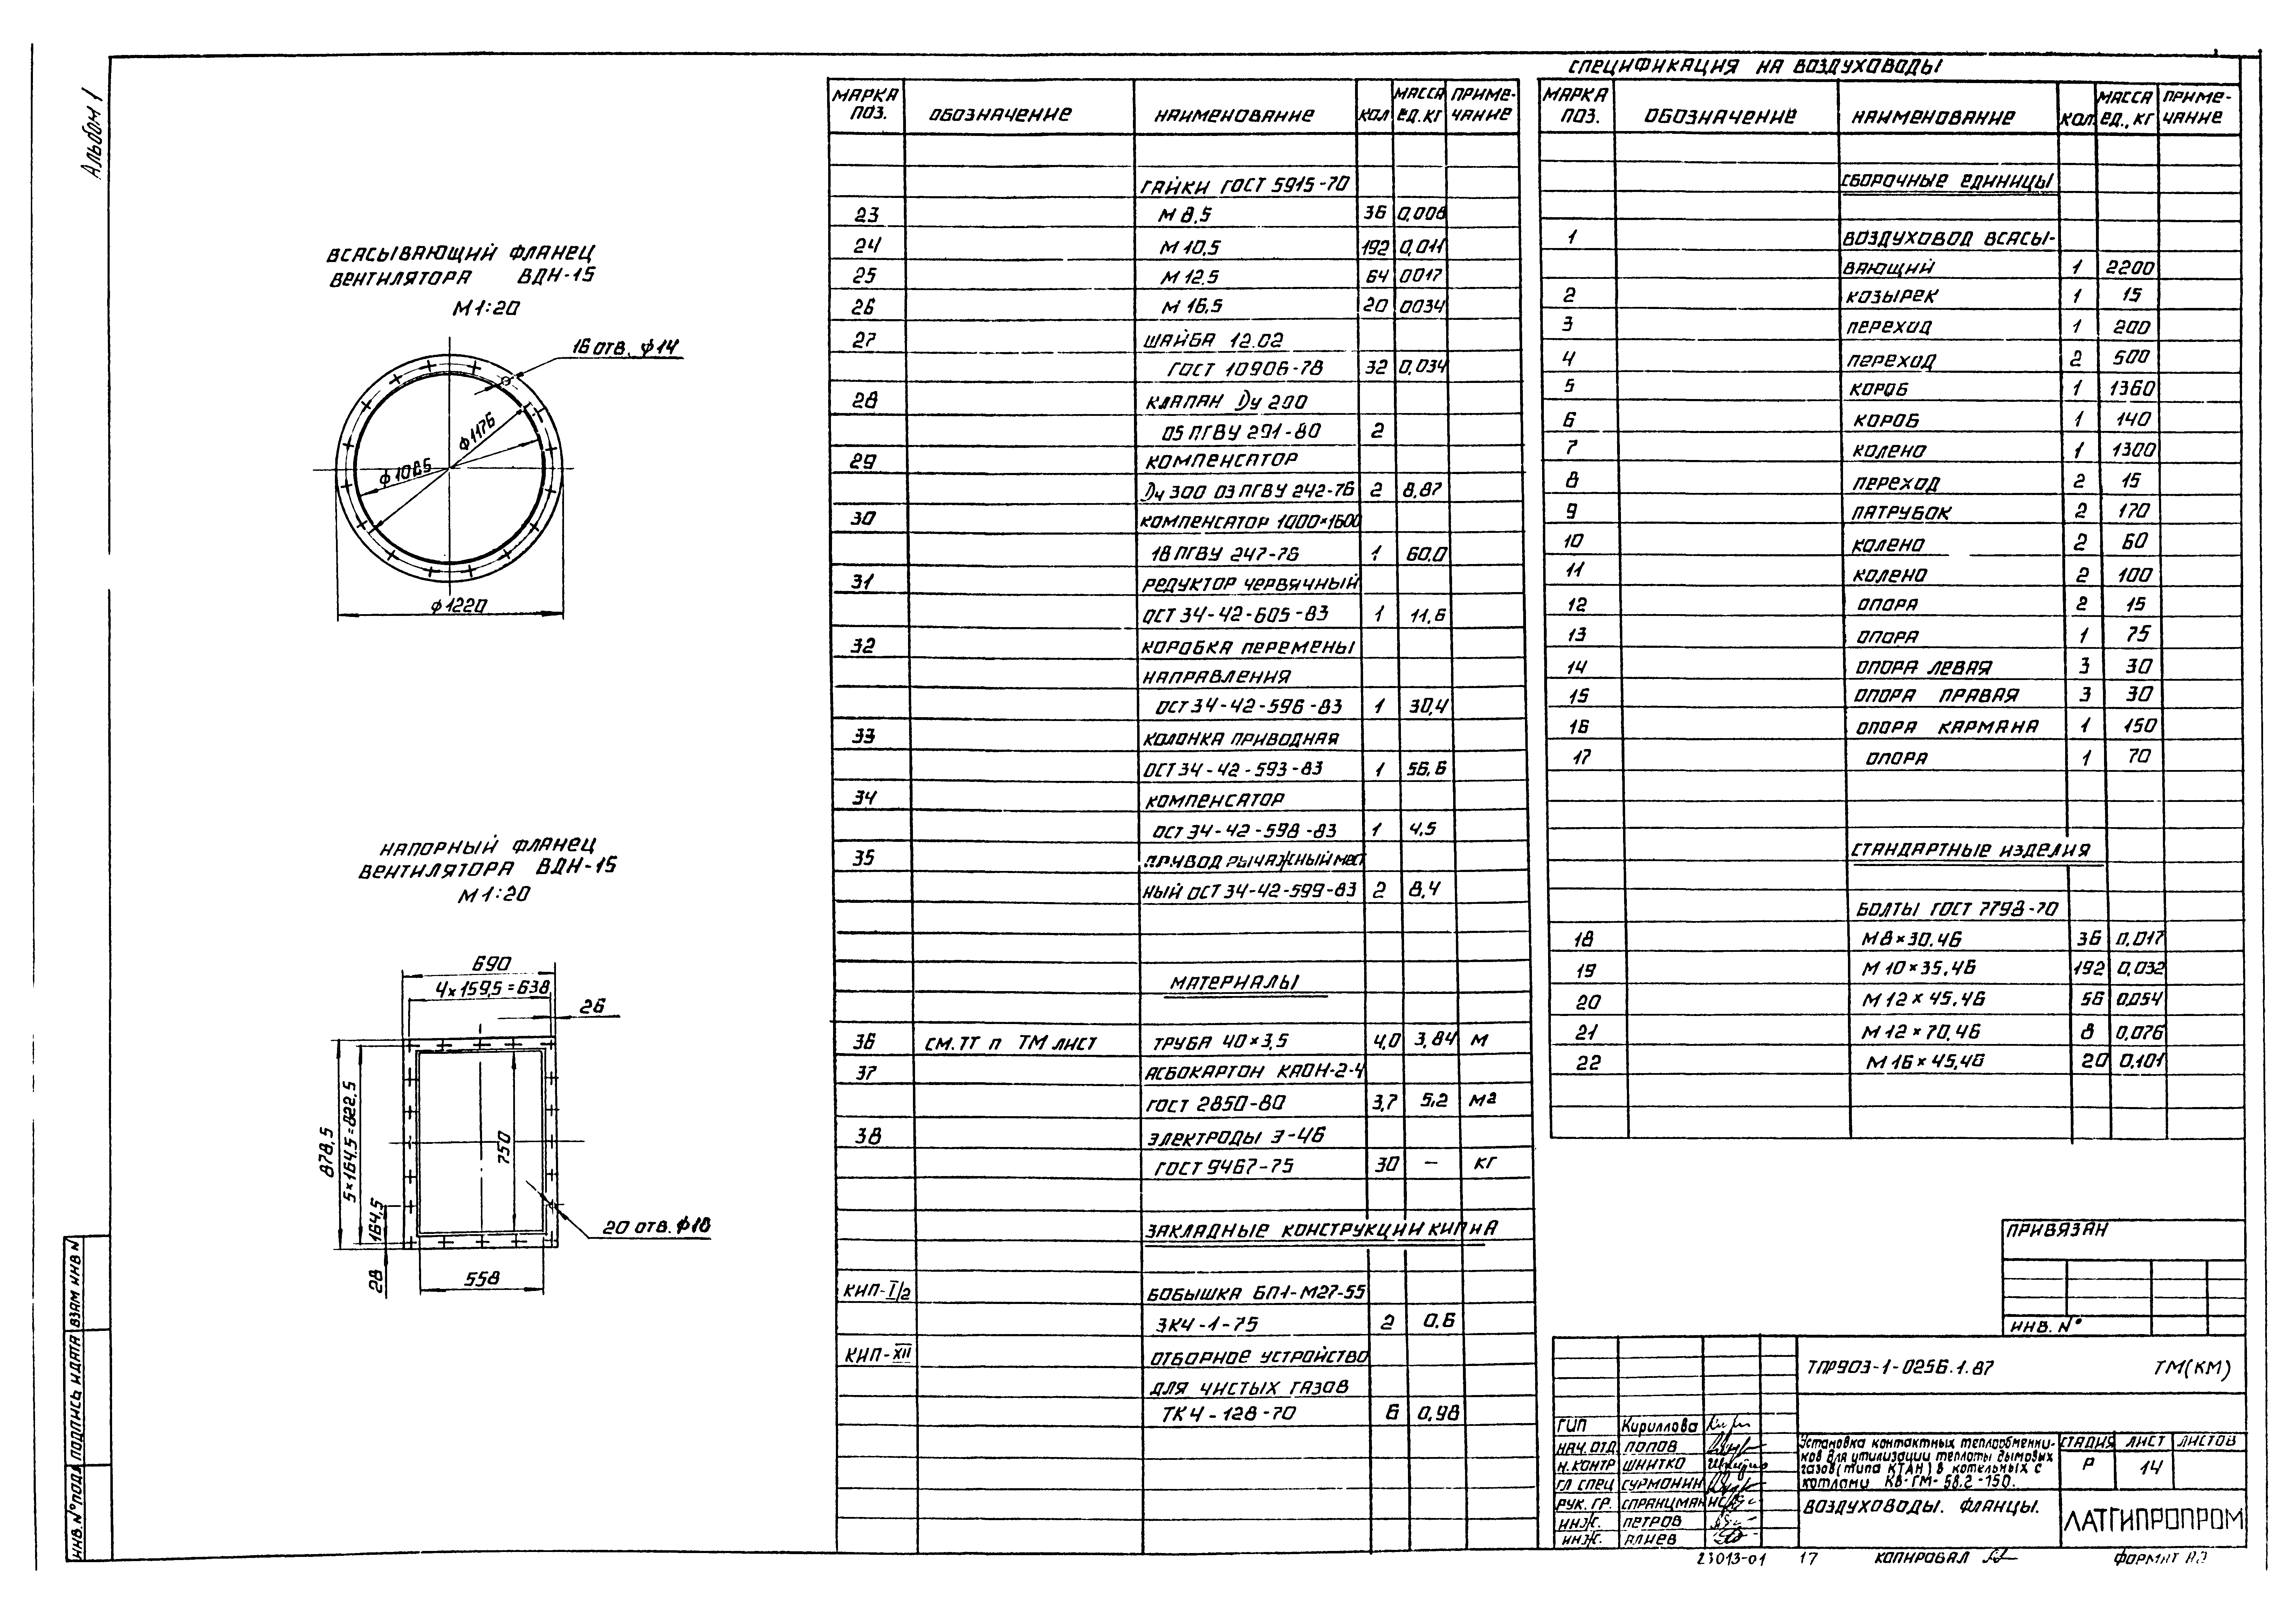 Альбом 1
ВСАСЫВАЮЩИЙ ФЛАНЕЦ
ВЕНТИЛЯТОРА ВДН-15
М 1:20
16 ОТВ. ф14
ф1176
ф1085
ф1220
НАПОРНЫЙ ФЛАНЕЦ
ВЕНТИЛЯТОРА ВДН-15
М 1:20
690
4×159,5=638
26
878,5
5×164,5=822,5
164,5
28
750
558
20 ОТВ. ф18
МАРКА ПОЗ. ОБОЗНАЧЕНИЕ НАИМЕНОВАНИЕ КОЛ МАССА ЕД.КГ ПРИМЕ-ЧАНИЕ
ГАЙКИ ГОСТ 5915-70
23 М 8,5 36 0,008
24 М 10,5 192 0,011
25 М 12,5 64 0017
26 М 16,5 20 0034
27 ШАЙБА 12.02
ГОСТ 10906-78 32 0,034
28 КЛАПАН Ду 200
05 ПГВУ 291-80 2
29 КОМПЕНСАТОР
Ду 300 03 ПГВУ 242-76 2 8,87
30 КОМПЕНСАТОР 1000×1600
18 ПГВУ 247-76 1 60,0
31 РЕДУКТОР ЧЕРВЯЧНЫЙ
ОСТ 34-42-605-83 1 11,6
32 КОРОБКА ПЕРЕМЕНЫ
НАПРАВЛЕНИЯ
ОСТ 34-42-596-83 1 30,4
33 КОЛОНКА ПРИВОДНАЯ
ОСТ 34-42-593-83 1 56,6
34 КОМПЕНСАТОР
ОСТ 34-42-598-83 1 4,5
35 ПРИВОД РЫЧАЖНЫЙ МЕСТ
НЫЙ ОСТ 34-42-599-83 2 8,4
МАТЕРИАЛЫ
36 СМ. ТТ П ТМ ЛИСТ ТРУБА 40×3,5 4,0 3,84 М
37 АСБОКАРТОН КАОН-2-4
ГОСТ 2850-80 3,7 5,2 М2
38 ЭЛЕКТРОДЫ Э-46
ГОСТ 9467-75 30 — КГ
ЗАКЛАДНЫЕ КОНСТРУКЦИИ КИП И А
КИП-I/2 БОБЫШКА БП1-М27-55
ЗК4-1-75 2 0,6
КИП-XII ОТБОРНОЕ УСТРОЙСТВО
ДЛЯ ЧИСТЫХ ГАЗОВ
ТК4-128-70 6 0,98
СПЕЦИФИКАЦИЯ НА ВОЗДУХОВОДЫ
МАРКА ПОЗ. ОБОЗНАЧЕНИЕ НАИМЕНОВАНИЕ КОЛ. МАССА ЕД., КГ ПРИМЕ-ЧАНИЕ
СБОРОЧНЫЕ ЕДИНИЦЫ
1 ВОЗДУХОВОД ВСАСЫ-
ВАЮЩИЙ 1 2200
2 КОЗЫРЕК 1 15
3 ПЕРЕХОД 1 200
4 ПЕРЕХОД 2 500
5 КОРОБ 1 1360
6 КОРОБ 1 140
7 КОЛЕНО 1 1300
8 ПЕРЕХОД 2 15
9 ПАТРУБОК 2 170
10 КОЛЕНО 2 60
11 КОЛЕНО 2 100
12 ОПОРА 2 15
13 ОПОРА 1 75
14 ОПОРА ЛЕВАЯ 3 30
15 ОПОРА ПРАВАЯ 3 30
16 ОПОРА КАРМАНА 1 150
17 ОПОРА 1 70
СТАНДАРТНЫЕ ИЗДЕЛИЯ
БОЛТЫ ГОСТ 7798-70
18 М8×30.46 36 0,017
19 М10×35.46 192 0,032
20 М12×45.46 56 0,054
21 М12×70.46 8 0,076
22 М16×45.46 20 0,101
ПРИВЯЗАН
ИНВ. №
ТПР903-1-0256.1.87 ТМ(КМ)
ГИП Кириллова
НАЧ. ОТД. ПОПОВ
Н. КОНТР ШНИТКО
ГЛ СПЕЦ СУРМОНИН
РУК. ГР. СПРАНЦМАН
ИНЖ. ПЕТРОВ
ИНЖ. АЛИЕВ
Установка контактных теплообменни-
ков для утилизации теплоты дымовых
газов (типа КТАН) в котельных с
котлами КВ-ГМ-58.2-150.
СТАДИЯ ЛИСТ ЛИСТОВ
Р 14
ВОЗДУХОВОДЫ. ФЛАНЦЫ.
ЛАТГИПРОПРОМ
23013-01 17 КОПИРОВАЛ ФОРМАТ А3
ИНВ. № ПОДЛ ПОДПИСЬ И ДАТА ВЗАМ ИНВ №